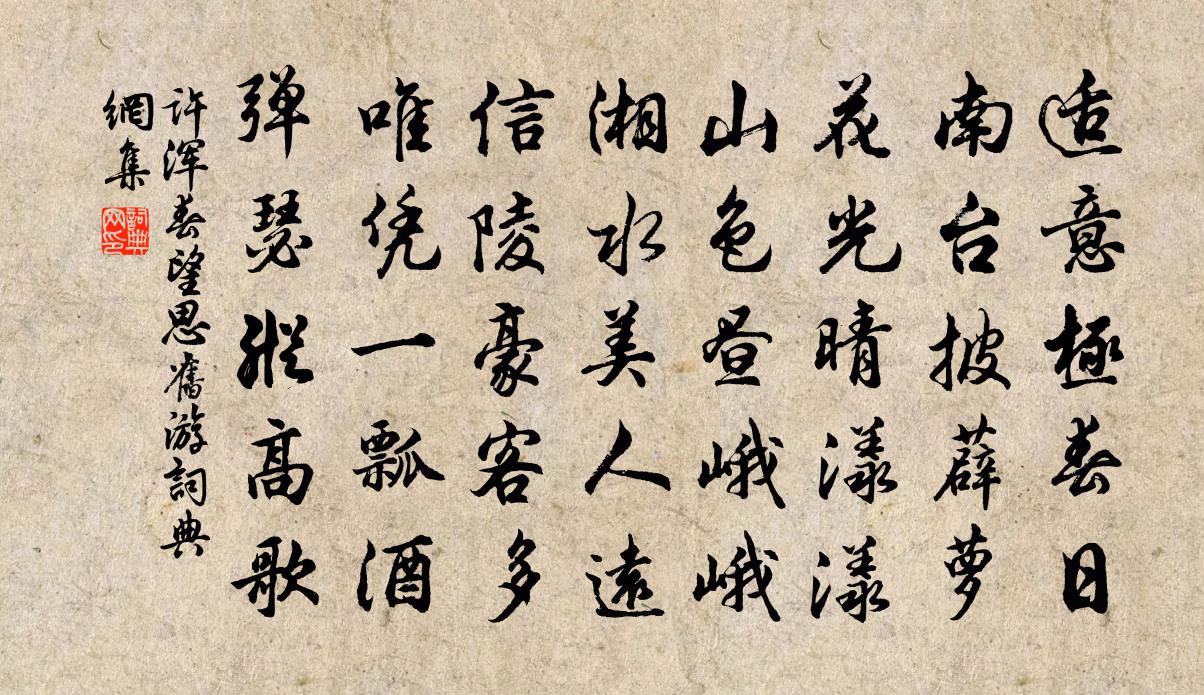 适意極春日
南台披薜萝
花光晴漾漾
山色昼峨峨
湘水美人遠
信陵豪客多
唯凭一瓢酒
弹瑟縱高歌
许渾春望思舊游詞典
網集
詞典
网印